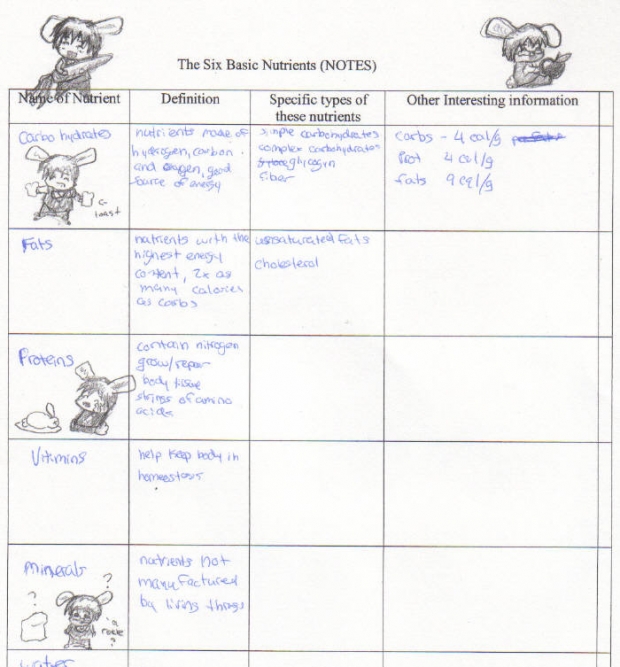 The Six Basic Nutrients (NOTES)
Name of Nutrient
Definition
Specific types of
these nutrients
Other Interesting information
Carbohydrates
toast
nutrients made of
hydrogen, carbon
and oxygen, good
source of energy
simple carbohydrates
complex carbohydrates
glycogin
fiber
carbs - 4 cal/g
Prot 4 cal/g
fats 9 cal/g
Fats
nutrients with the
highest energy
content, 2x as
many calories
as carbs
unsaturated fats
cholesterol
Proteins
contain nitrogen
grow/repair
body tissue
strings of amino
acids
Vitimins
help keep body in
homeostosis
minerals
?
?
a
rock
nutrients not
manufactured
by living things
water